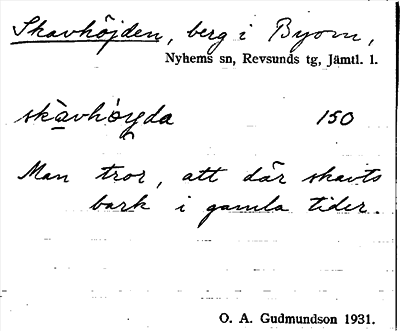 Skavhöjden, berg i Byom,
Nyhems sn, Revsunds tg, Jämtl. l.
skàvhöyda 150
Man tror, att där skavts
bark i gamla tider.
O. A. Gudmundson 1931.